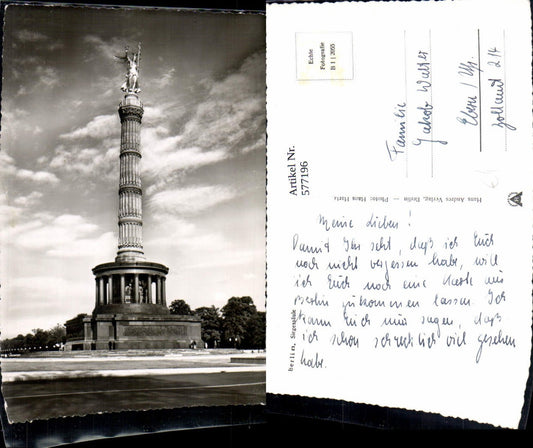 Echte
Fotografie
B 1 | 2053
Artikel Nr.
577196
Familie
Jakob Walter
Ebern / Ufr.
Zollamt 214
Hans Andres Verlag, Berlin — Photo: Hans Hartz
Berlin, Siegessäule
Meine Lieben!
Damit Ihr seht, daß ich Euch
noch nicht vergessen habe, will
ich Euch noch eine Karte aus
Berlin zukommen lassen. Ich
kann Euch nur sagen, daß
ich schon schrecklich viel gesehen
habe.